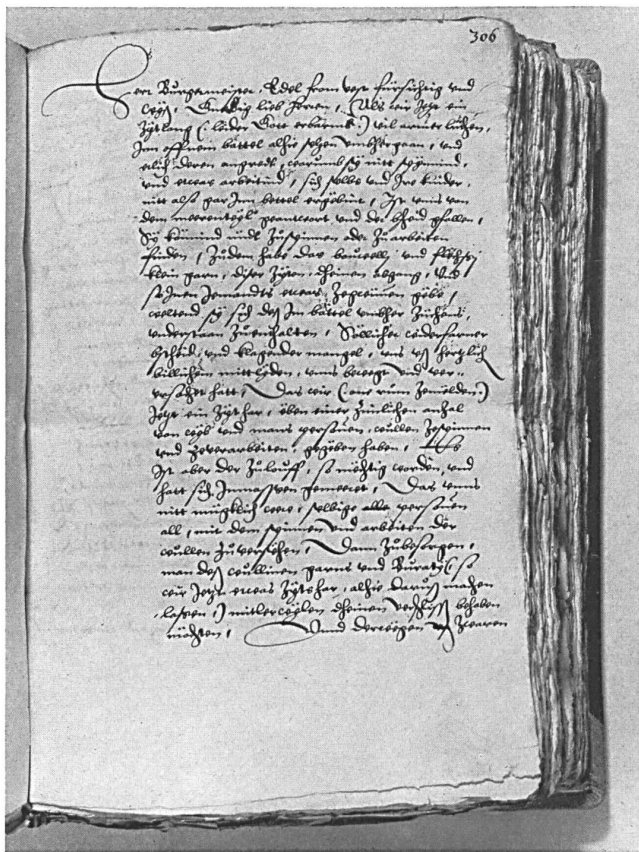 306
Herr Burgermeister, Edel from vest fürsichtig und
wyß, Gnedig lieb Herren, Als wir jetzt ein
Zytlang (: leider Gott erbarms :) vil armer lüthen,
Inn offnem bättel alhie sehen umbhergaan, und
etlich deren angredt, warumb sy nitt spynnind,
und etwas arbeitind, sich selbs und Ire kinder,
nitt also gar Inn bettel ergäbint, Ist unns von
dem meerentheyl geantwort und der bscheid gfallen,
Sy könnind nüdt Zuspinnen oder Zu arbeiten
finden, Zudem habe das bouwelly und flöchsy
klein garn, diser Zyten, dheinen abgang, Wo
sy Inen Jemandts etwas Zegwünnen gäbe,
weltend sy sich deß Im bättel umbher Züchens,
understaan Zuenthalten, Söllicher
bscheid, und klagender mangel, uns uß hertzlich
billichem mittlyden, unns bewegt und ver-
ursachet hatt, Das wir (: one rum Zemälden :)
Jetzt ein Zyt har, eben einer Zimlichen anzal
von wyb und manns personen, wullen Zespinnen
und Zeverarbeiten, gegäben haben, Es
Ist aber der Zulouff, so mächtig worden, und
hatt sich Inmassen gemeeret, Das unns
nitt müglich were, sellige alle personen
all, mit dem spinnen und arbeiten der
wullen Zuversehen, Dann Zubesorgen,
man deß wullinen garns und Buratys (: so
wir Jetzt etwas Zyts har, alhie daruß machen
lassen :) mitlerwylen dheinen verschlyß behaben
möchten, Unnd derwägen uß